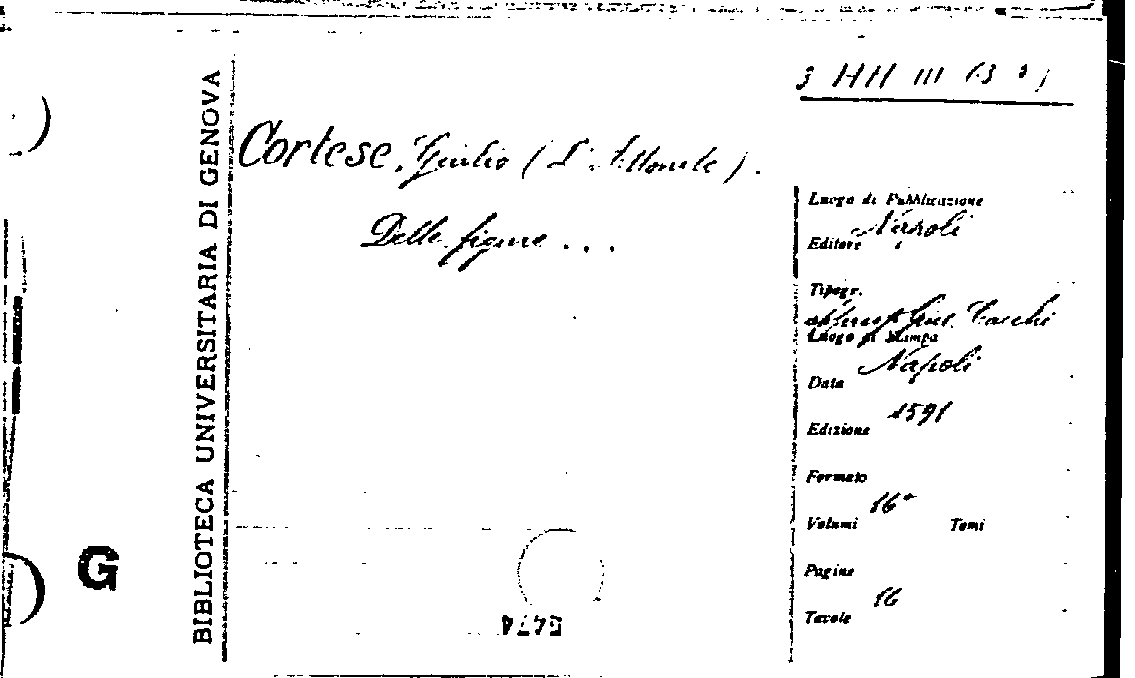 BIBLIOTECA UNIVERSITARIA DI GENOVA
G
3 HH III
Cortese, Giulio (L'Attonito).
Delle figure...
Luogo di Pubblicazione
Napoli
Editore
Tipogr.
Gius. Cacchi
Luogo di Stampa
Napoli
Data
1591
Edizione
Formato
16°
Volumi Tomi
Pagine
16
Tavole
5474